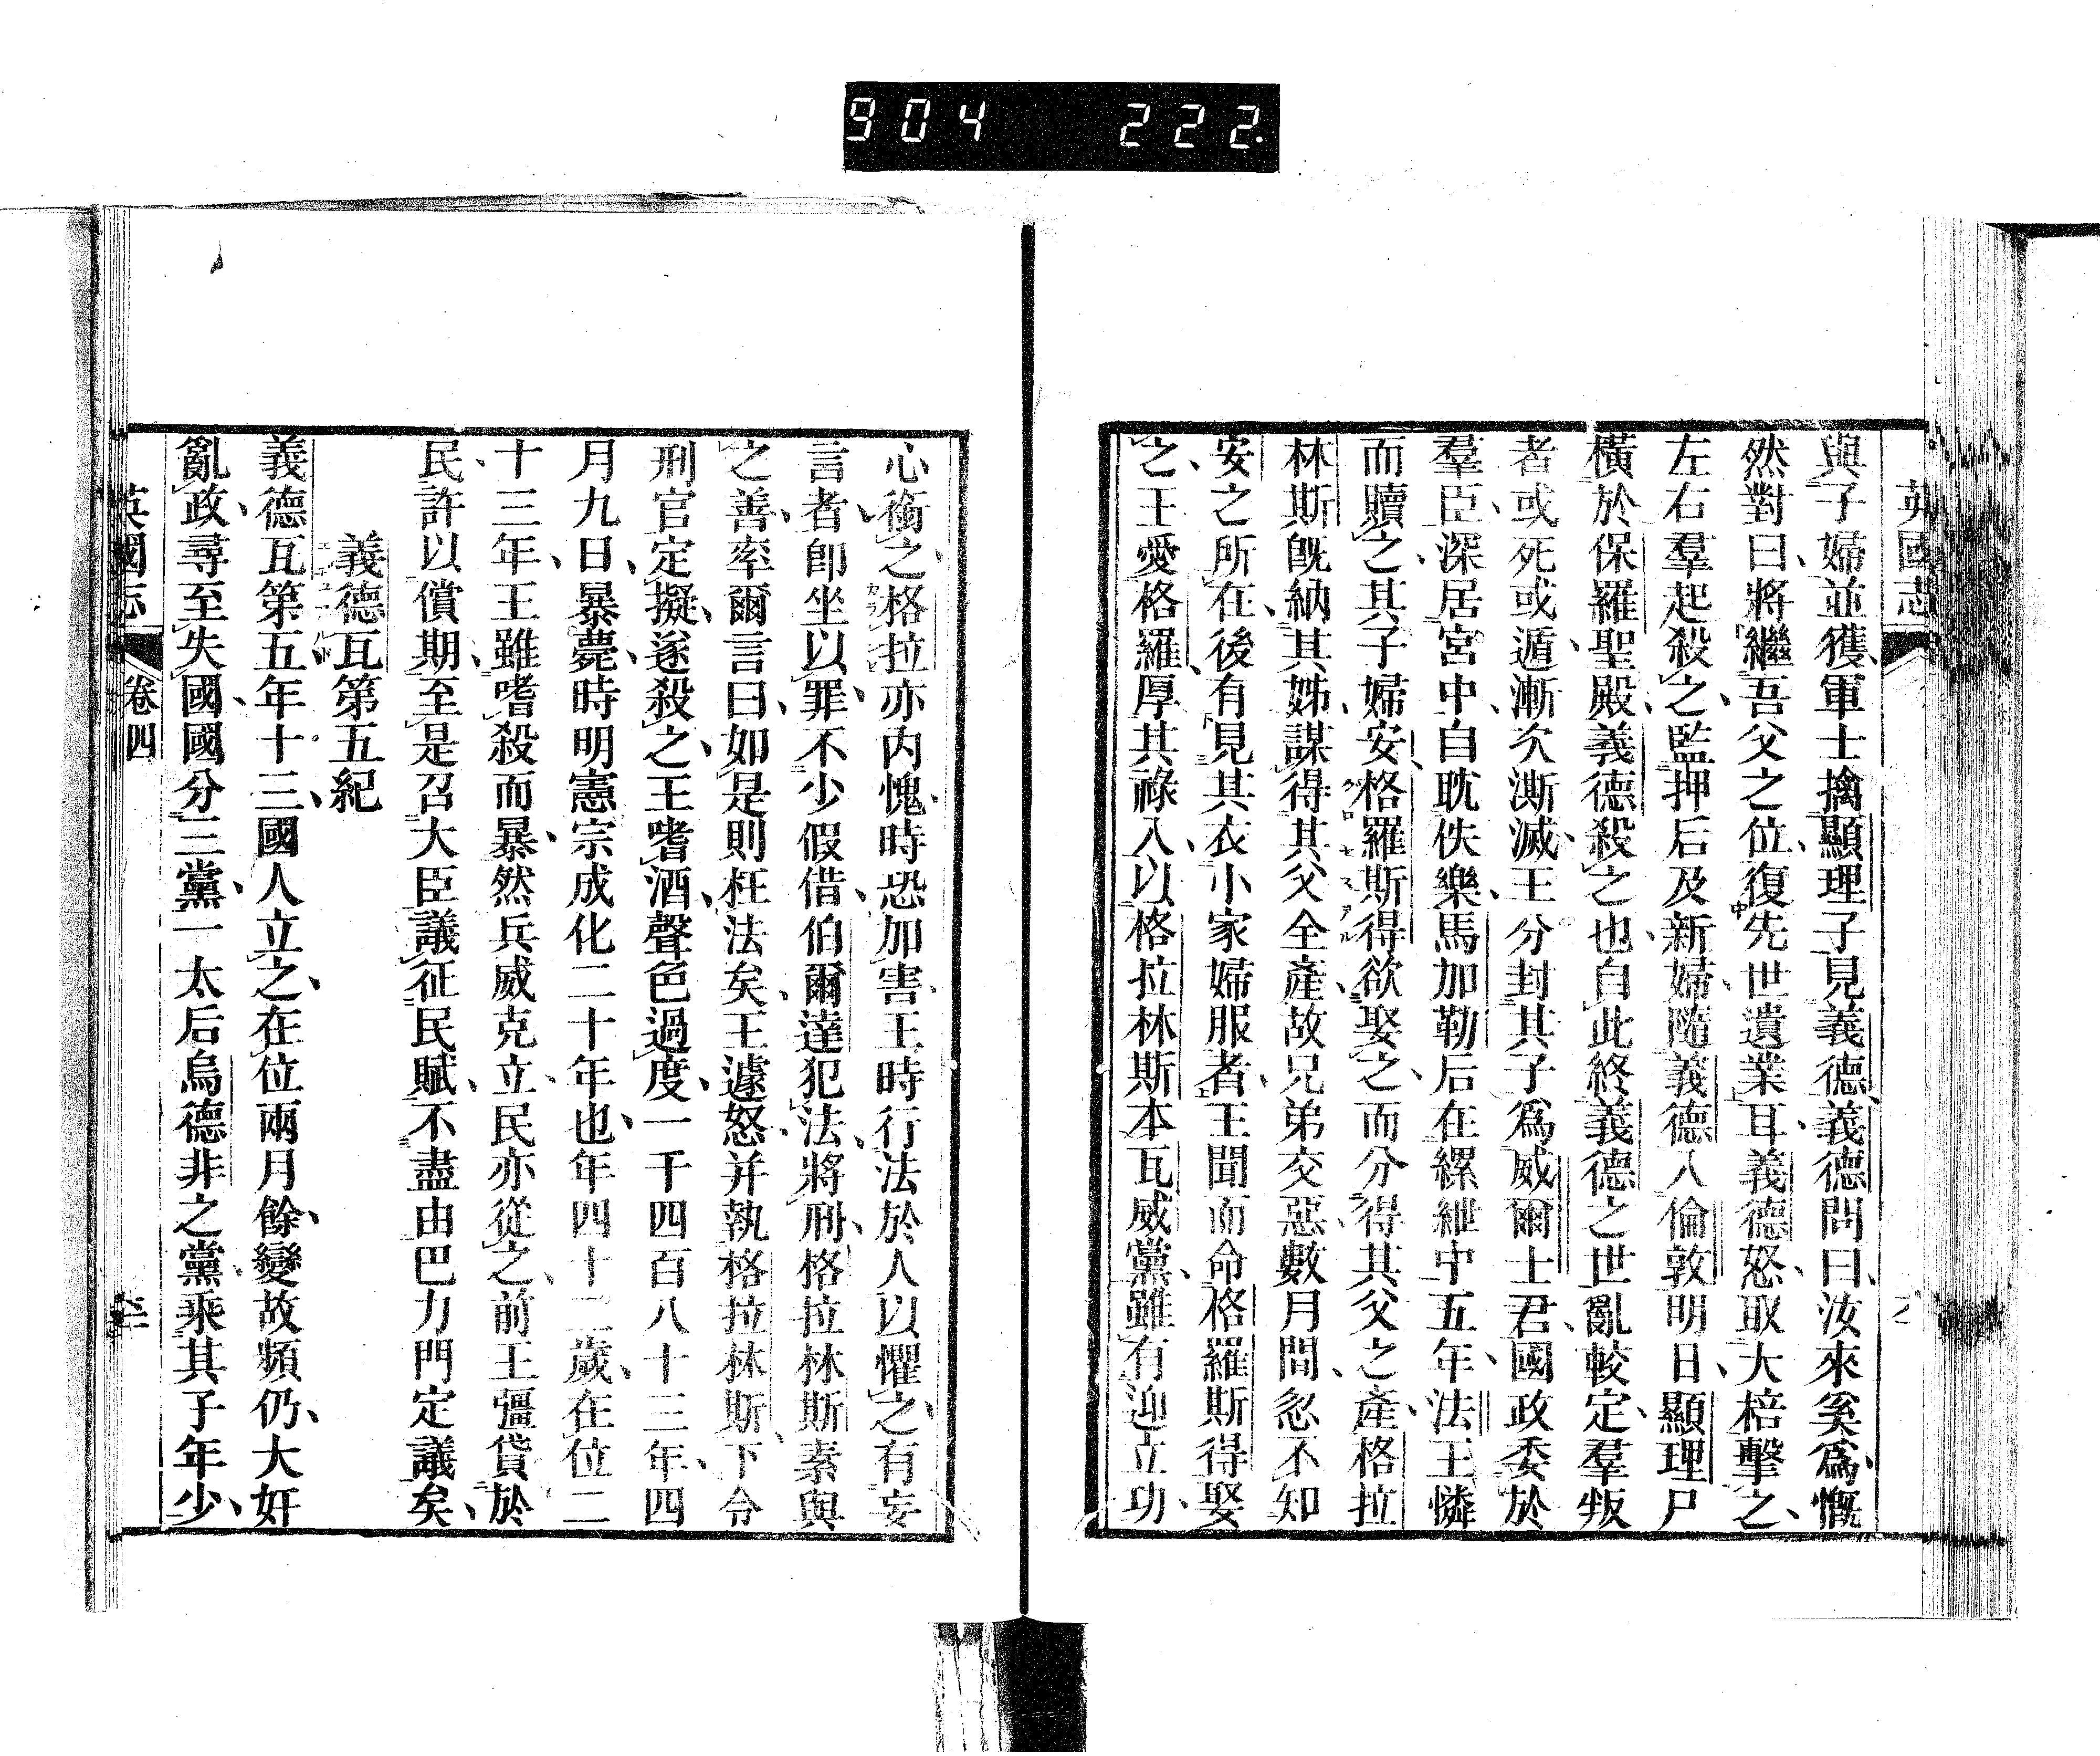 904 222
英國志
與子婦並獲軍士擒顯理子見義德義德問曰汝來奚爲慨
然對曰將繼吾父之位復先世遺業耳義德怒取大棓擊之
左右羣起殺之監押后及新婦隨義德入倫敦明日顯理尸
橫於保羅聖殿義德殺之也自此終義德之世亂較定羣叛
者或死或遁漸次澌滅王分封其子爲威爾士君國政委於
羣臣深居宮中自耽佚樂馬加勒后在縲紲中五年法王憐
而贖之其子婦安格羅斯得欲娶之而分得其父之產格拉
林斯旣納其姊謀得其父全產故兄弟交惡數月間忽不知
安之所在後有見其衣小家婦服者王聞而命格羅斯得娶
之王愛格羅厚其祿入以格拉林斯本瓦威黨雖有迎立功
心銜之格拉亦內愧時恐加害王時行法於人以懼之有妄
言者卽坐以罪不少假借伯爾達犯法將刑格拉林斯素與
之善率爾言曰如是則枉法矣王遽怒并執格拉林斯下令
刑官定擬遂殺之王嗜酒聲色過度一千四百八十三年四
月九日暴薨時明憲宗成化二十年也年四十二歲在位二
十三年王雖嗜殺而暴然兵威克立民亦從之前王彊貸於
民許以償期至是召大臣議征民賦不盡由巴力門定議矣
義德瓦第五紀
義德瓦第五年十三國人立之在位兩月餘變故頻仍大奸
亂政尋至失國國分三黨一太后烏德非之黨乘其子年少
英國志 卷四